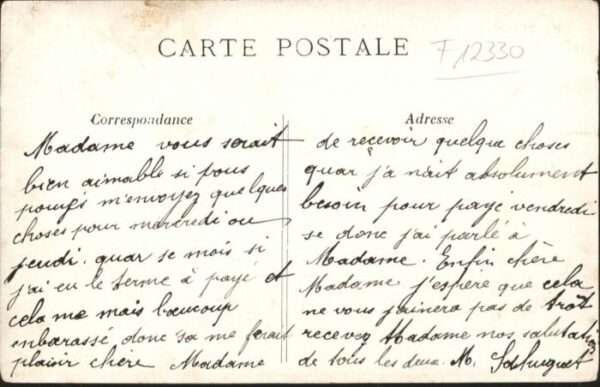 CARTE POSTALE
F 12330
Correspondance
Madame vous serait
bien aimable si vous
pouvés m'envoyez quelques
choses pour mercredi ou
jeudi. quar se mois si
j'ai eu le terme à payé et
cela me mais beaucoup
enbarassé, donc sa me ferait
plaisir chère Madame
Adresse
de recevoir quelque choses
quar j'a nait absolument
besoin pour payé vendredi
se donc j'ai parlé à
Madame. Enfin chère
Madame j'espère que cela
ne vous jainera pas de trôt
recevez Madame nos salutations
de tous les deux. M.